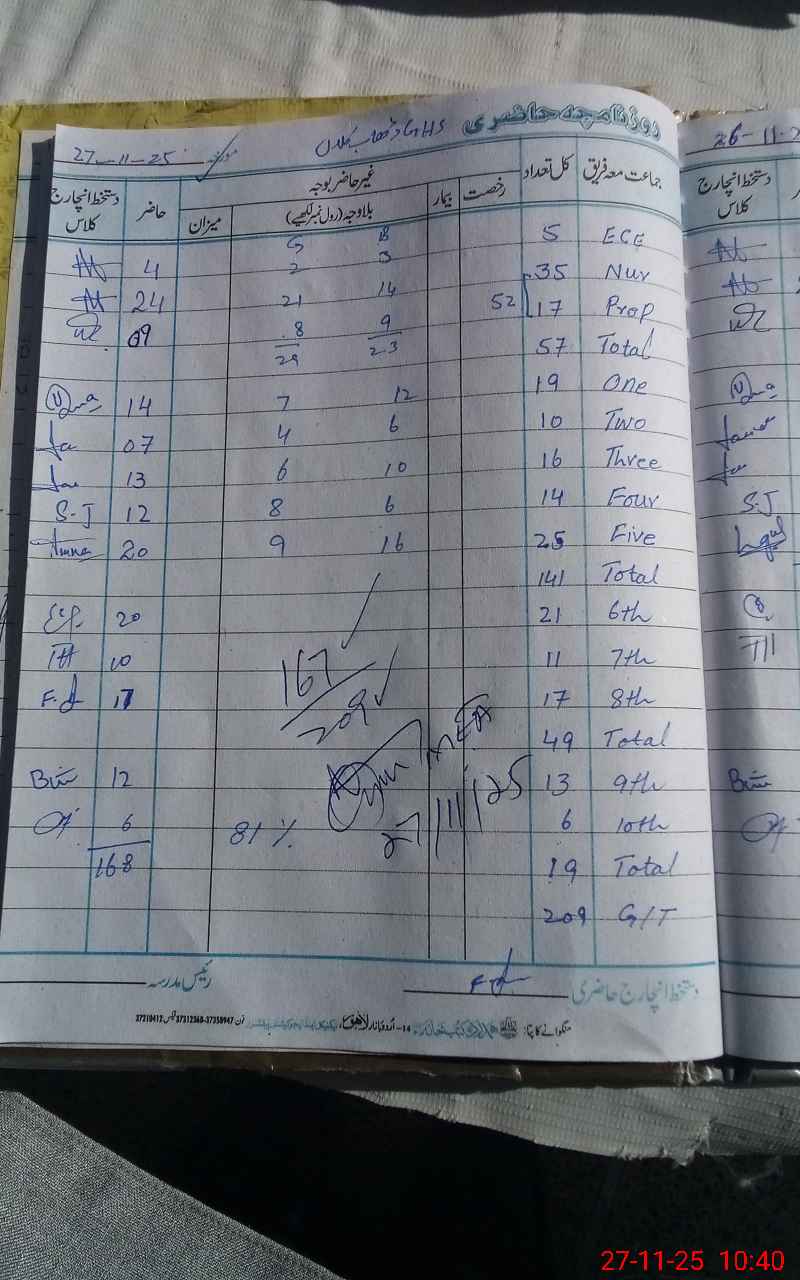 روزنامچہ حاضری GHS مورخہ 27-11-25
جماعت معہ فریق کل تعداد غیر حاضر بوجہ حاضر دستخط انچارج کلاس
رخصت بیمار بلاوجہ (رول نمبر لکھیے) میزان
G B
ECE 5 3 2 4
Nur 35 14 21 24
Prep 17 52 9 8 09
Total 57 23 29
One 19 12 7 14
Two 10 6 4 07
Three 16 10 6 13
Four 14 6 8 12 S.J
Five 25 16 9 20
Total 141
6th 21 20
7th 11 10
8th 17 17
Total 49
167
209
MEA
9th 13 12
27/11/25
10th 6 81 % 6
Total 19 168
G/T 209
دستخط انچارج حاضری رئیس مدرسہ
منگوانے کا پتہ: 14-اردو بازار لاہور فون 37358947-37312368 فیکس 37210412
26-11-2
دستخط انچارج کلاس
S.J
27-11-25 10:40